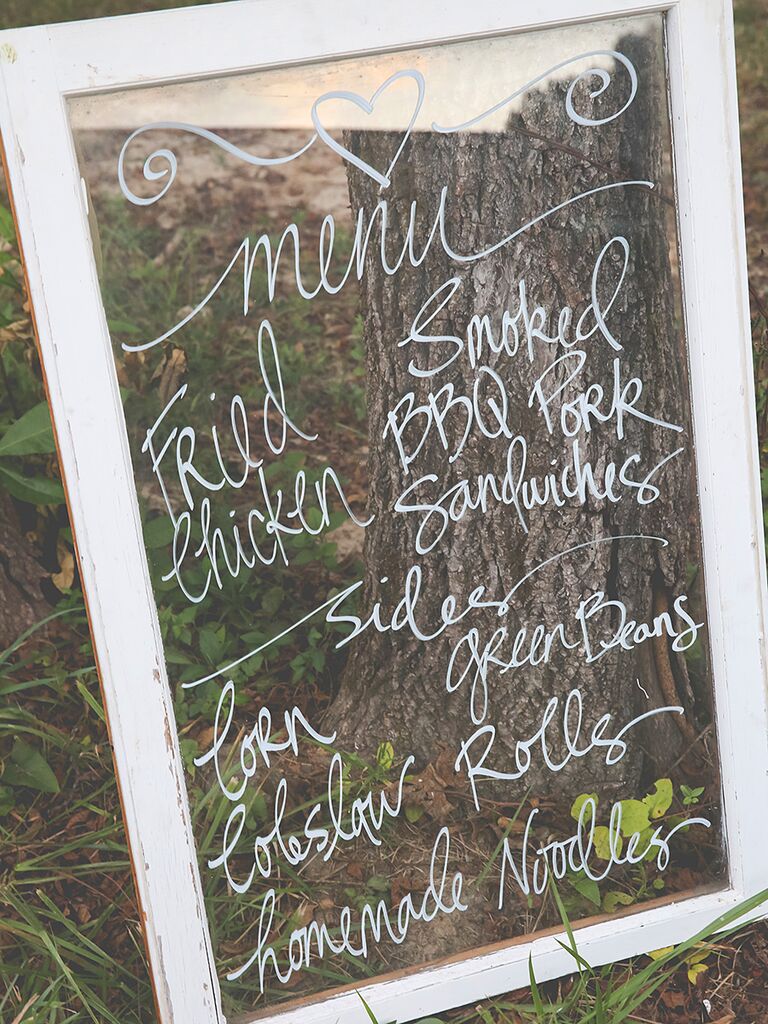 menu
Fried
Chicken
Smoked
BBQ Pork
Sandwiches
sides
Corn
green Beans
Coleslaw
Rolls
homemade Noodles